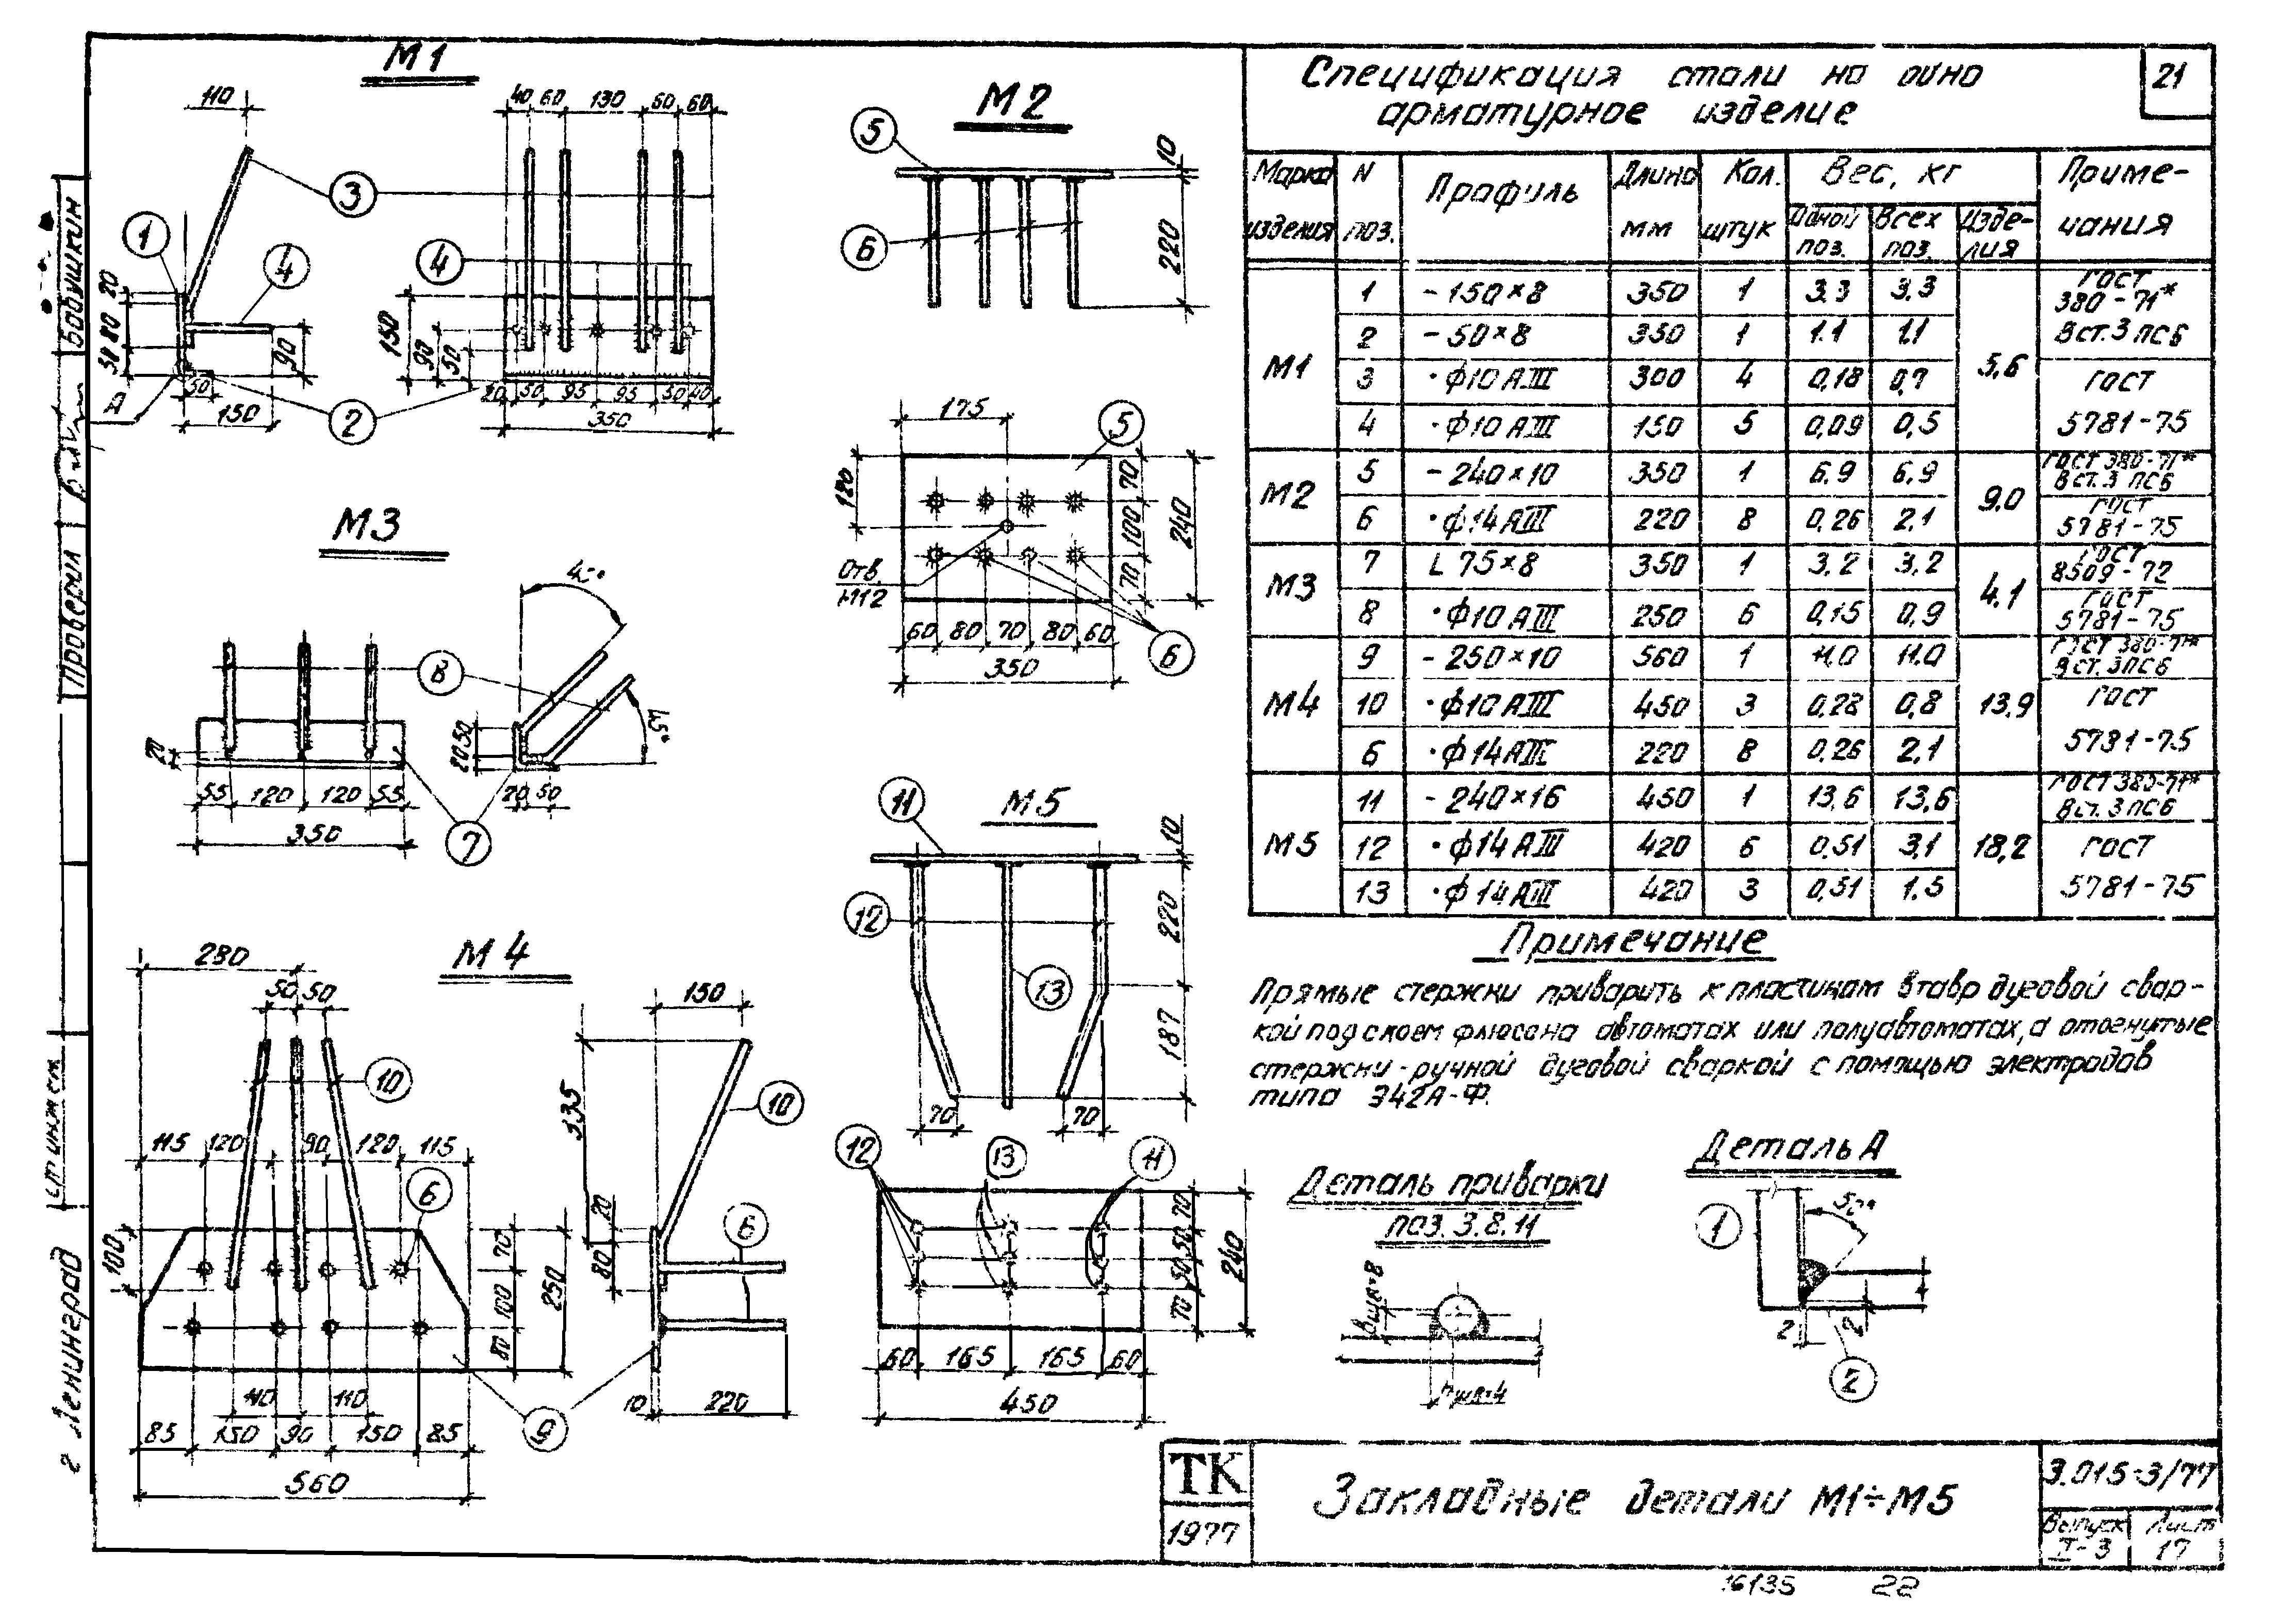 М1
110
40 60 130 60 60
3
1
4
4
20
80
50
90
50
150
А
2
150
90
50
20 50 95 95 50 40
350
М2
5
6
10
220
175
5
120
70
100
70
240
Отв.
60 80 70 80 60
350
6
М3
8
45°
20
50
20
20 50
55 120 120 55
350
7
М4
280
50 50
10
115 120 90 120 115
6
100
70
100
80
250
110 110
85 150 90 150 85
560
9
150
335
10
20
80
6
10 220
М5
11
12
13
10
220
187
70 70
12 13 11
70
50
50
70
240
60 165 165 60
450
Спецификация стали на одно
арматурное изделие
21
Марка изделия N поз. Профиль Длина мм Кол. штук Вес, кг Одной поз. Всех поз. Изделия Примечания
М1 1 - 150×8 350 1 3.3 3.3 5,6 ГОСТ 380-71* Вст.3 пс6
2 - 50×8 350 1 1.1 1.1
3 · ф10 АIII 300 4 0,18 0,7 ГОСТ
4 · ф10 АIII 150 5 0,09 0,5 5781-75
М2 5 - 240×10 350 1 6.9 6.9 9.0 ГОСТ 380-71* Вст.3 пс6
6 · ф14 АIII 220 8 0,26 2.1 ГОСТ 5781-75
М3 7 L 75×8 350 1 3.2 3,2 4.1 ГОСТ 8509-72
8 · ф10 АIII 250 6 0,15 0,9 ГОСТ 5781-75
М4 9 - 250×10 560 1 11.0 11.0 13.9 ГОСТ 380-71* Вст. 3пс6
10 · ф10 АIII 450 3 0,28 0,8 ГОСТ
6 · ф14 АIII 220 8 0,26 2,1 5781-75
М5 11 - 240×16 450 1 13,6 13,6 18,2 ГОСТ 380-71* Вст. 3 пс6
12 · ф14 АIII 420 6 0,51 3,1 ГОСТ
13 · ф14 АIII 420 3 0,51 1.5 5781-75
Примечание
Прямые стержни приварить к пластинам втавр дуговой свар-
кой под слоем флюса на автоматах или полуавтоматах, а отогнутые
стержни - ручной дуговой сваркой с помощью электродов
типа Э42А-Ф.
Деталь приварки
поз. 3.8.11
Деталь А
1
50°
2 2
2
ТК
1977
Закладные детали М1÷М5
3.015-3/77
Выпуск Лист
II-3 17
16135 22
Бабушкин
Проверил
ст инж
г Ленинград